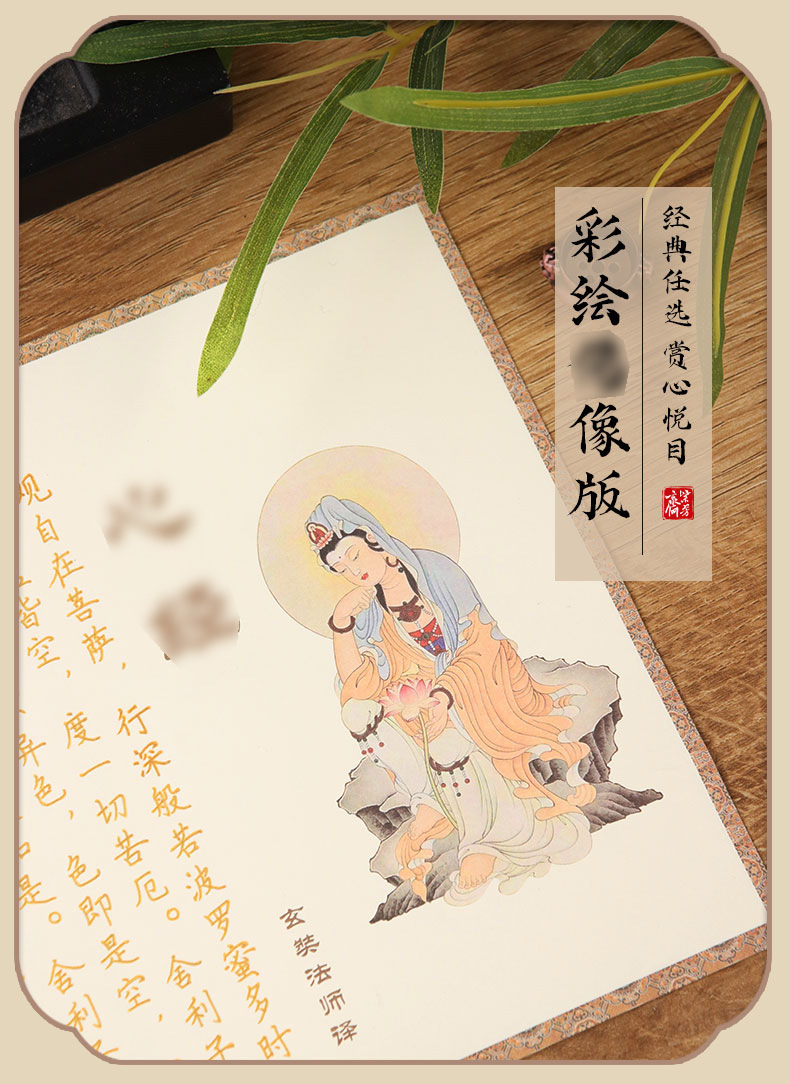 经典任选 赏心悦目
彩绘像版
玄奘法师译
观自在菩萨，行深般若波罗蜜多时
皆空，度一切苦厄。舍利子
异色，色即是空，
是。舍利子